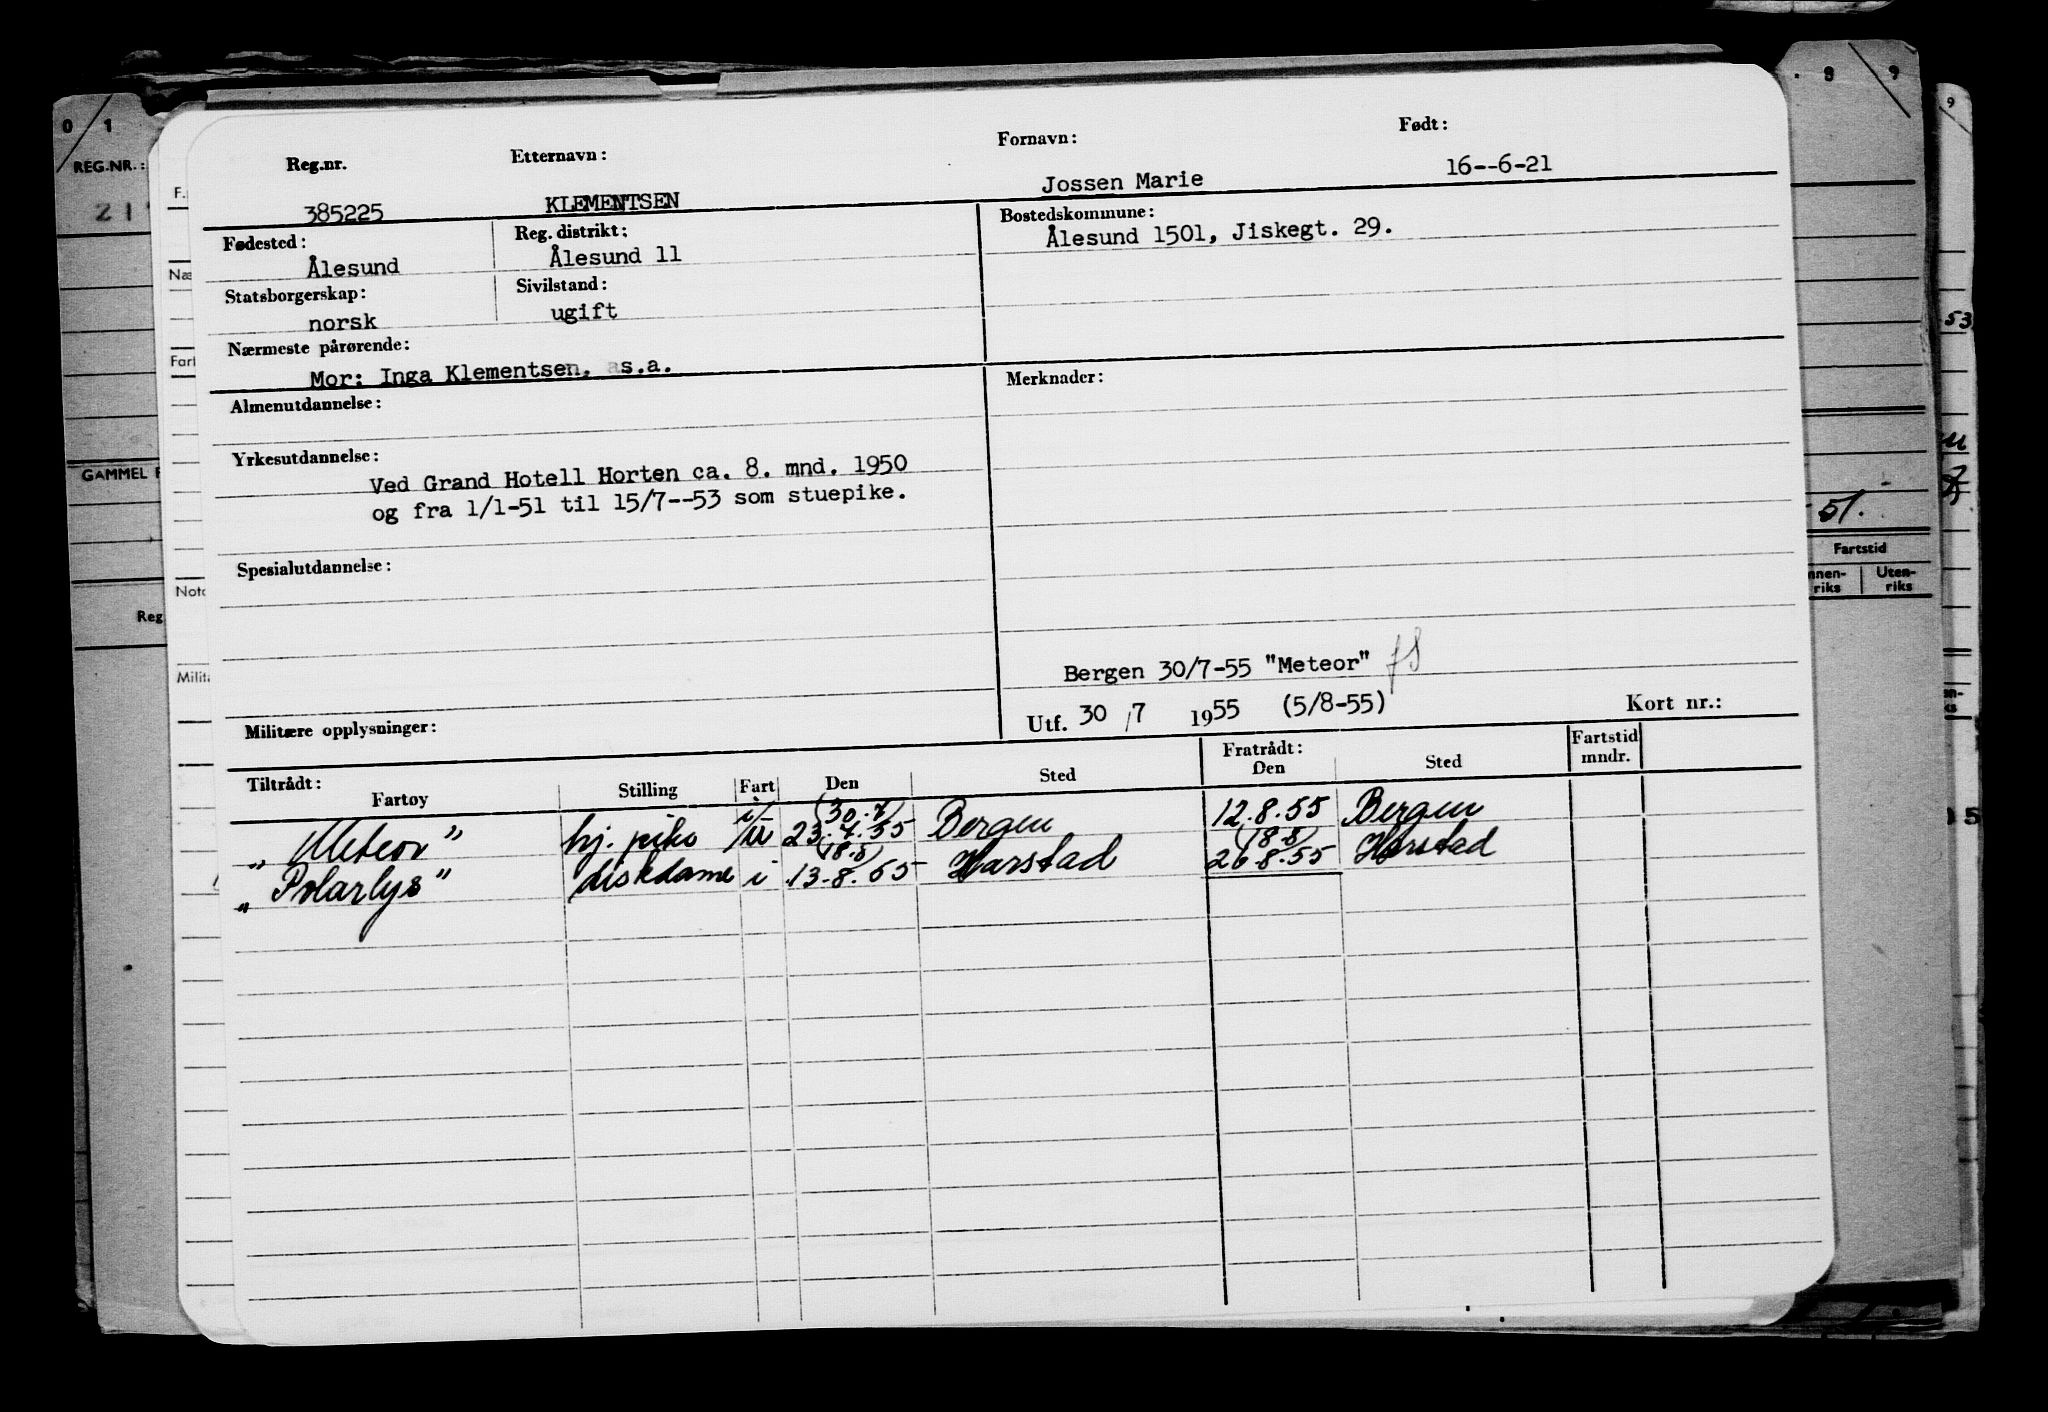 0 1
REG.NR.:
GAMMEL
Reg
F.
Næ
Fart
Noto
Milit
8 9
9
53
51.
Fartstid
riks
Uten-
riks
Reg.nr. Etternavn: Fornavn: Født:
385225 KLEMENTSEN Jossen Marie 16--6-21
Fødested: Reg. distrikt: Bostedskommune:
Ålesund Ålesund 11 Ålesund 1501, Jiskegt. 29.
Statsborgerskap: Sivilstand:
norsk ugift
Nærmeste pårørende:
Mor: Inga Klementsen, s.a.
Almenutdannelse: Merknader:
Yrkesutdannelse:
Ved Grand Hotell Horten ca. 8. mnd. 1950
og fra 1/1-51 til 15/7--53 som stuepike.
Spesialutdannelse:
Bergen 30/7-55 "Meteor"
Militære opplysninger: Utf. 30 /7 1955 (5/8-55) Kort nr.:
Tiltrådt: Fratrådt: Fartstid
Fartøy Stilling Fart Den Sted Den Sted mndr.
(30.7)
„Meteor" hj. pike i/u 23.7.55 Bergen 12.8.55 Bergen
(18.8) (18.8)
„Polarlys" diskdame i 13.8.55 Harstad 26.8.55 Harstad